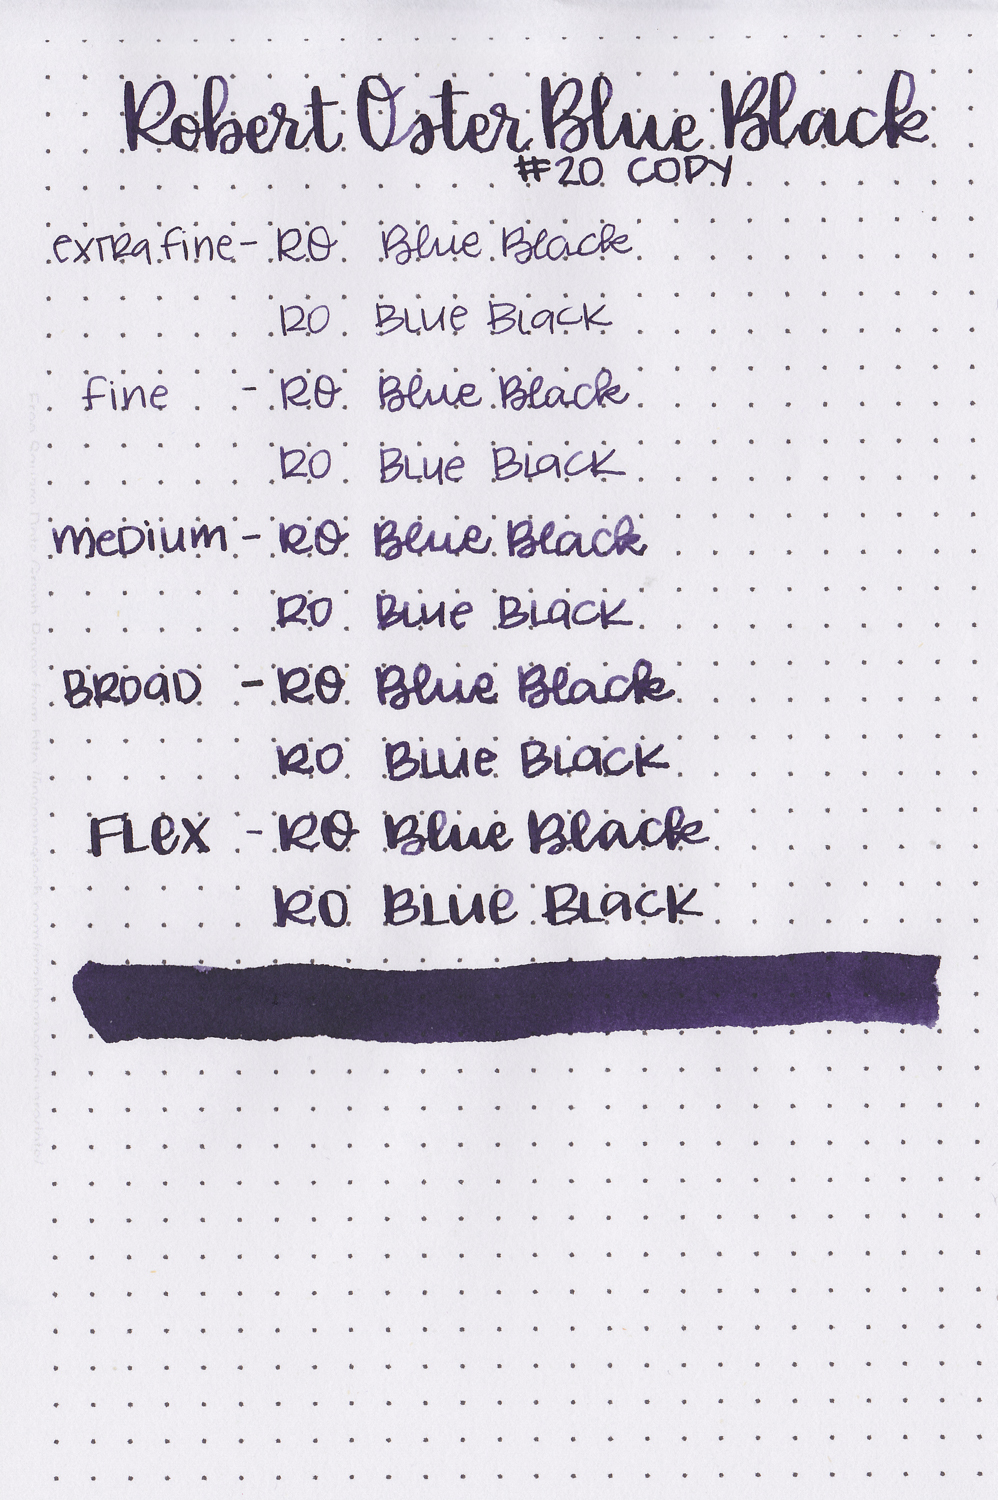 Robert Oster Blue Black
#20 COPY
extra fine - RO Blue Black
RO Blue Black
fine - RO Blue Black
RO Blue Black
medium - RO Blue Black
RO Blue Black
BROAD - RO Blue Black
RO Blue Black
FLex - RO Blue Black
RO Blue Black